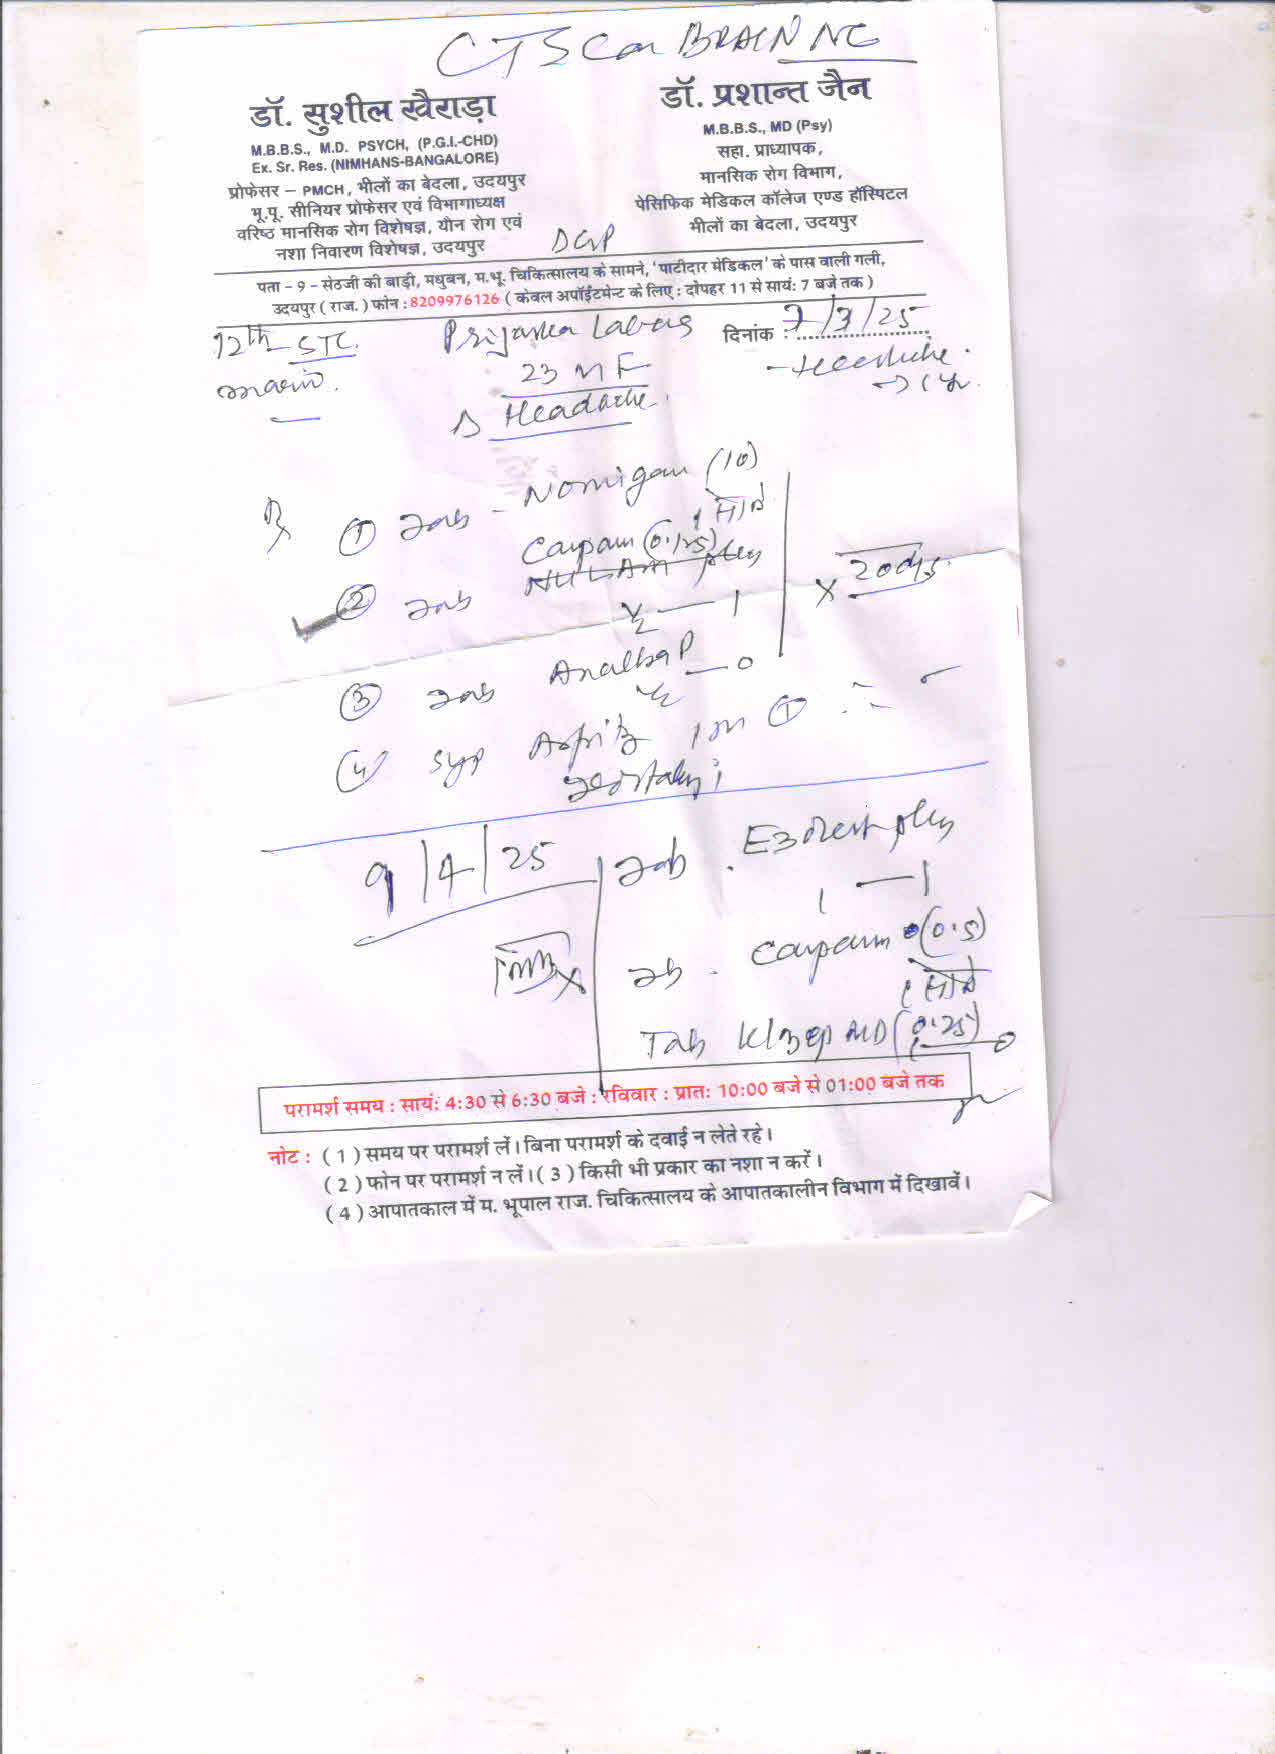 CT Scan BRAIN NC
डॉ. सुशील खैराड़ा
M.B.B.S., M.D. PSYCH, (P.G.I.-CHD)
Ex. Sr. Res. (NIMHANS-BANGALORE)
प्रोफेसर – PMCH, भीलों का बेदला, उदयपुर
भू.पू. सीनियर प्रोफेसर एवं विभागाध्यक्ष
वरिष्ठ मानसिक रोग विशेषज्ञ, यौन रोग एवं
नशा निवारण विशेषज्ञ, उदयपुर
डॉ. प्रशान्त जैन
M.B.B.S., MD (Psy)
सहा. प्राध्यापक,
मानसिक रोग विभाग,
पेसिफिक मेडिकल कॉलेज एण्ड हॉस्पिटल
भीलों का बेदला, उदयपुर
पता – 9 – सेठजी की बाड़ी, मधुबन, म.भू. चिकित्सालय के सामने, 'पाटीदार मेडिकल' के पास वाली गली,
उदयपुर ( राज. ) फोन : 8209976126 ( केवल अपॉईंटमेन्ट के लिए : दोपहर 11 से सायं: 7 बजे तक )
12th STC.
Priyanka
दिनांक : 7/3/25
23 M F
- Headache.
Headache.
① Tab - Nomigan (10)
1 सोते
Caypam (0.125)
② Tab
½ — 1
x 20 days
③ Tab
½ — 0
④ Syp
9/4/25
Tab.
1 — 1
Tab. Caypam (0.5)
1 सोते
Tab MD (0.25)
परामर्श समय : सायं: 4:30 से 6:30 बजे : रविवार : प्रात: 10:00 बजे से 01:00 बजे तक
नोट : ( 1 ) समय पर परामर्श लें। बिना परामर्श के दवाई न लेते रहे।
( 2 ) फोन पर परामर्श न लें। ( 3 ) किसी भी प्रकार का नशा न करें।
( 4 ) आपातकाल में म. भूपाल राज. चिकित्सालय के आपातकालीन विभाग में दिखावें।